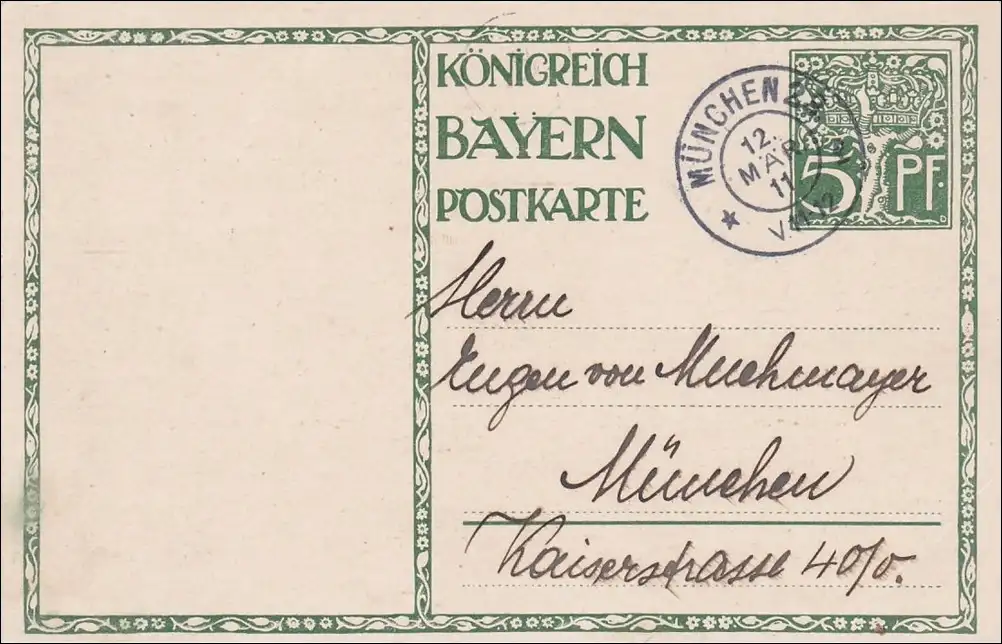 KÖNIGREICH
BAYERN
POSTKARTE
MÜNCHEN
12.
MÄR
11
V.11-12
5 PF.
Herrn
Eugen von Muchmayer
München
Kaiserstrasse 40/0.